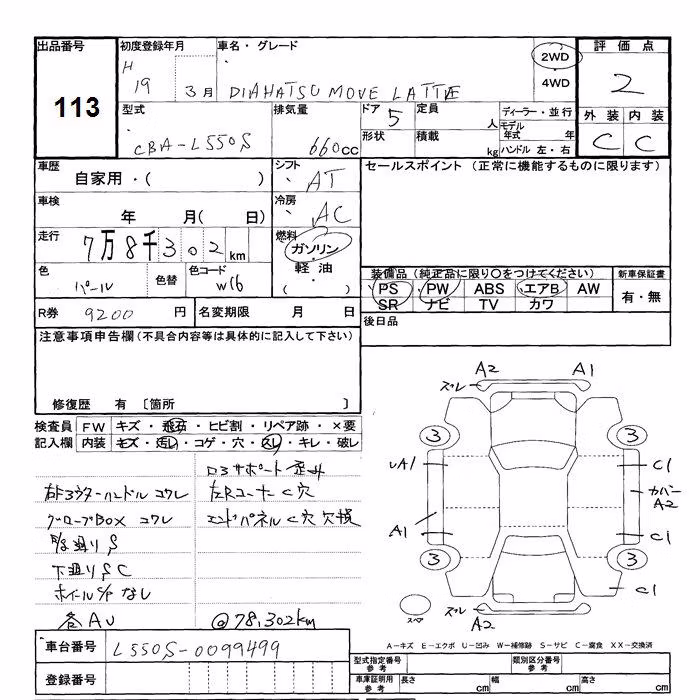 出品番号
113
初度登録年月
H 19 3月
車名・グレード
DIAHATSU MOVE LATTE
2WD
4WD
評価点
2
型式
CBA-L550S
排気量
660cc
ドア
5
定員
人
形状
積載
kg
ディーラー・並行
モデル年式 年
ハンドル 左・右
外装 内装
C C
車歴
自家用・( )
シフト
AT
セールスポイント (正常に機能するものに限ります)
車検
年 月( 日)
冷房
AC
走行
7万8千302km
燃料
ガソリン・
軽油・
( )
色
パール
色替
色コード
W16
装備品 (純正品に限り○をつけてください)
PS PW ABS エアB AW
SR ナビ TV カワ
新車保証書
有・無
R券 9200 円
名変期限 月 日
後日品
注意事項申告欄(不具合内容等は具体的に記入して下さい)
修復歴 有 〔箇所 〕
検査員 FW キズ・飛石・ヒビ割・リペア跡・×要
記入欄 内装 キズ・汚れ・コゲ・穴・スレ・キレ・破レ
ロ3サポート 歪み
右ドアウターハンドル コワレ
左Rコーナー C穴
グローブBOX コワレ
エンドパネル C穴 欠損
下廻りSC
ホイールS/P なし
各AU
@78,302km
車台番号 L550S-0099499
登録番号
A2 A1
ズレ
3 3
UA1 C1
カバー
A2
A1 C1
3 3
C1
スペア
ズレ
A2
A-キズ E-エクボ U-凹み W-補修跡 S-サビ C-腐食 XX-交換済
型式指定番号
参考
類別区分番号
参考
車庫証明用
参考
長さ cm 幅 cm 高さ cm